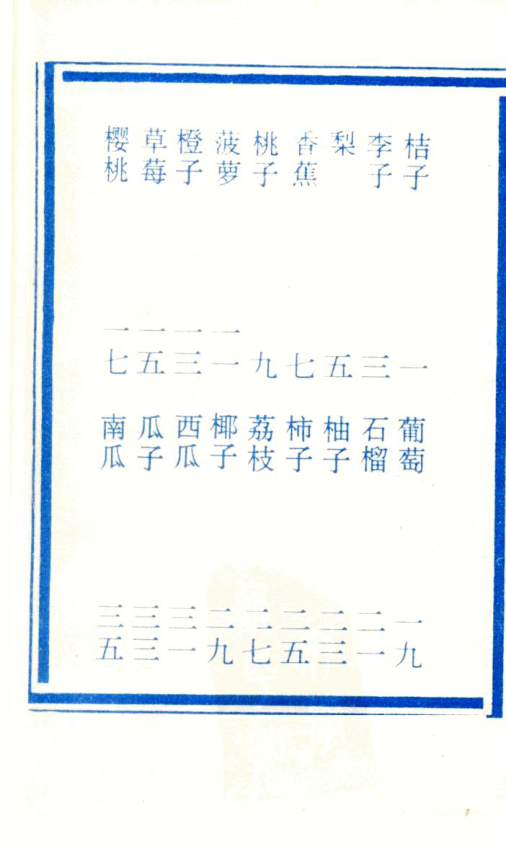 桔子 一
李子 三
梨 五
香蕉 七
桃子 九
菠萝 一一
橙子 一三
草莓 一五
樱桃 一七
葡萄 一九
石榴 二一
柚子 二三
柿子 二五
荔枝 二七
椰子 二九
西瓜 三一
瓜子 三三
南瓜 三五